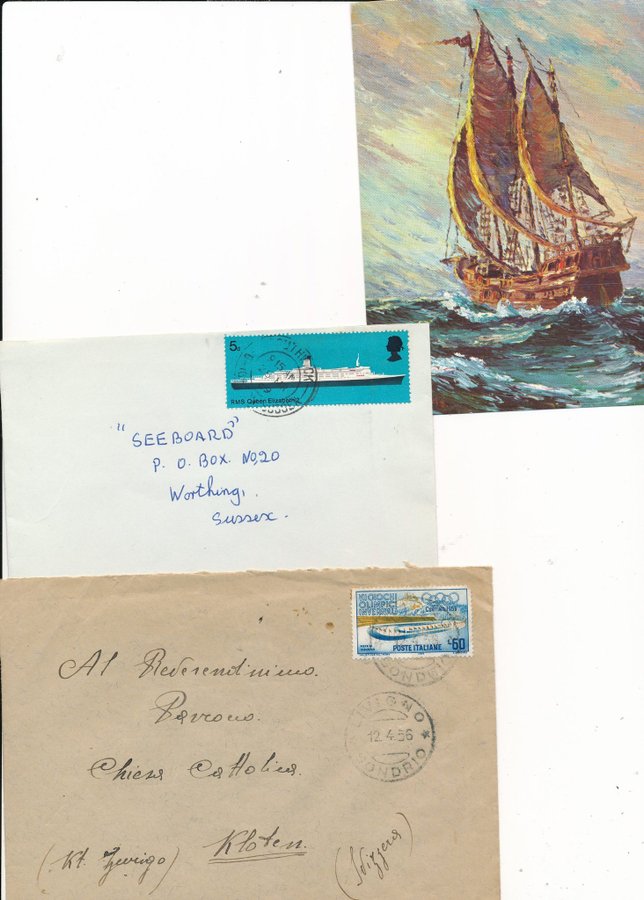 5D
RMS Queen Elizabeth 2
"SEEBOARD"
P. O. BOX. No, 20
Worthing,
Sussex.
VII GIOCHI
OLIMPICI
INVERNALI
CORTINA 1956
POSTE ITALIANE
L.60
LIVIGNO
12.4.56
SONDRIO
Al Reverendissimo.
Parroco.
Chiesa Cattolica.
Kloten.
(Kt. Zurigo)
(Svizzera)